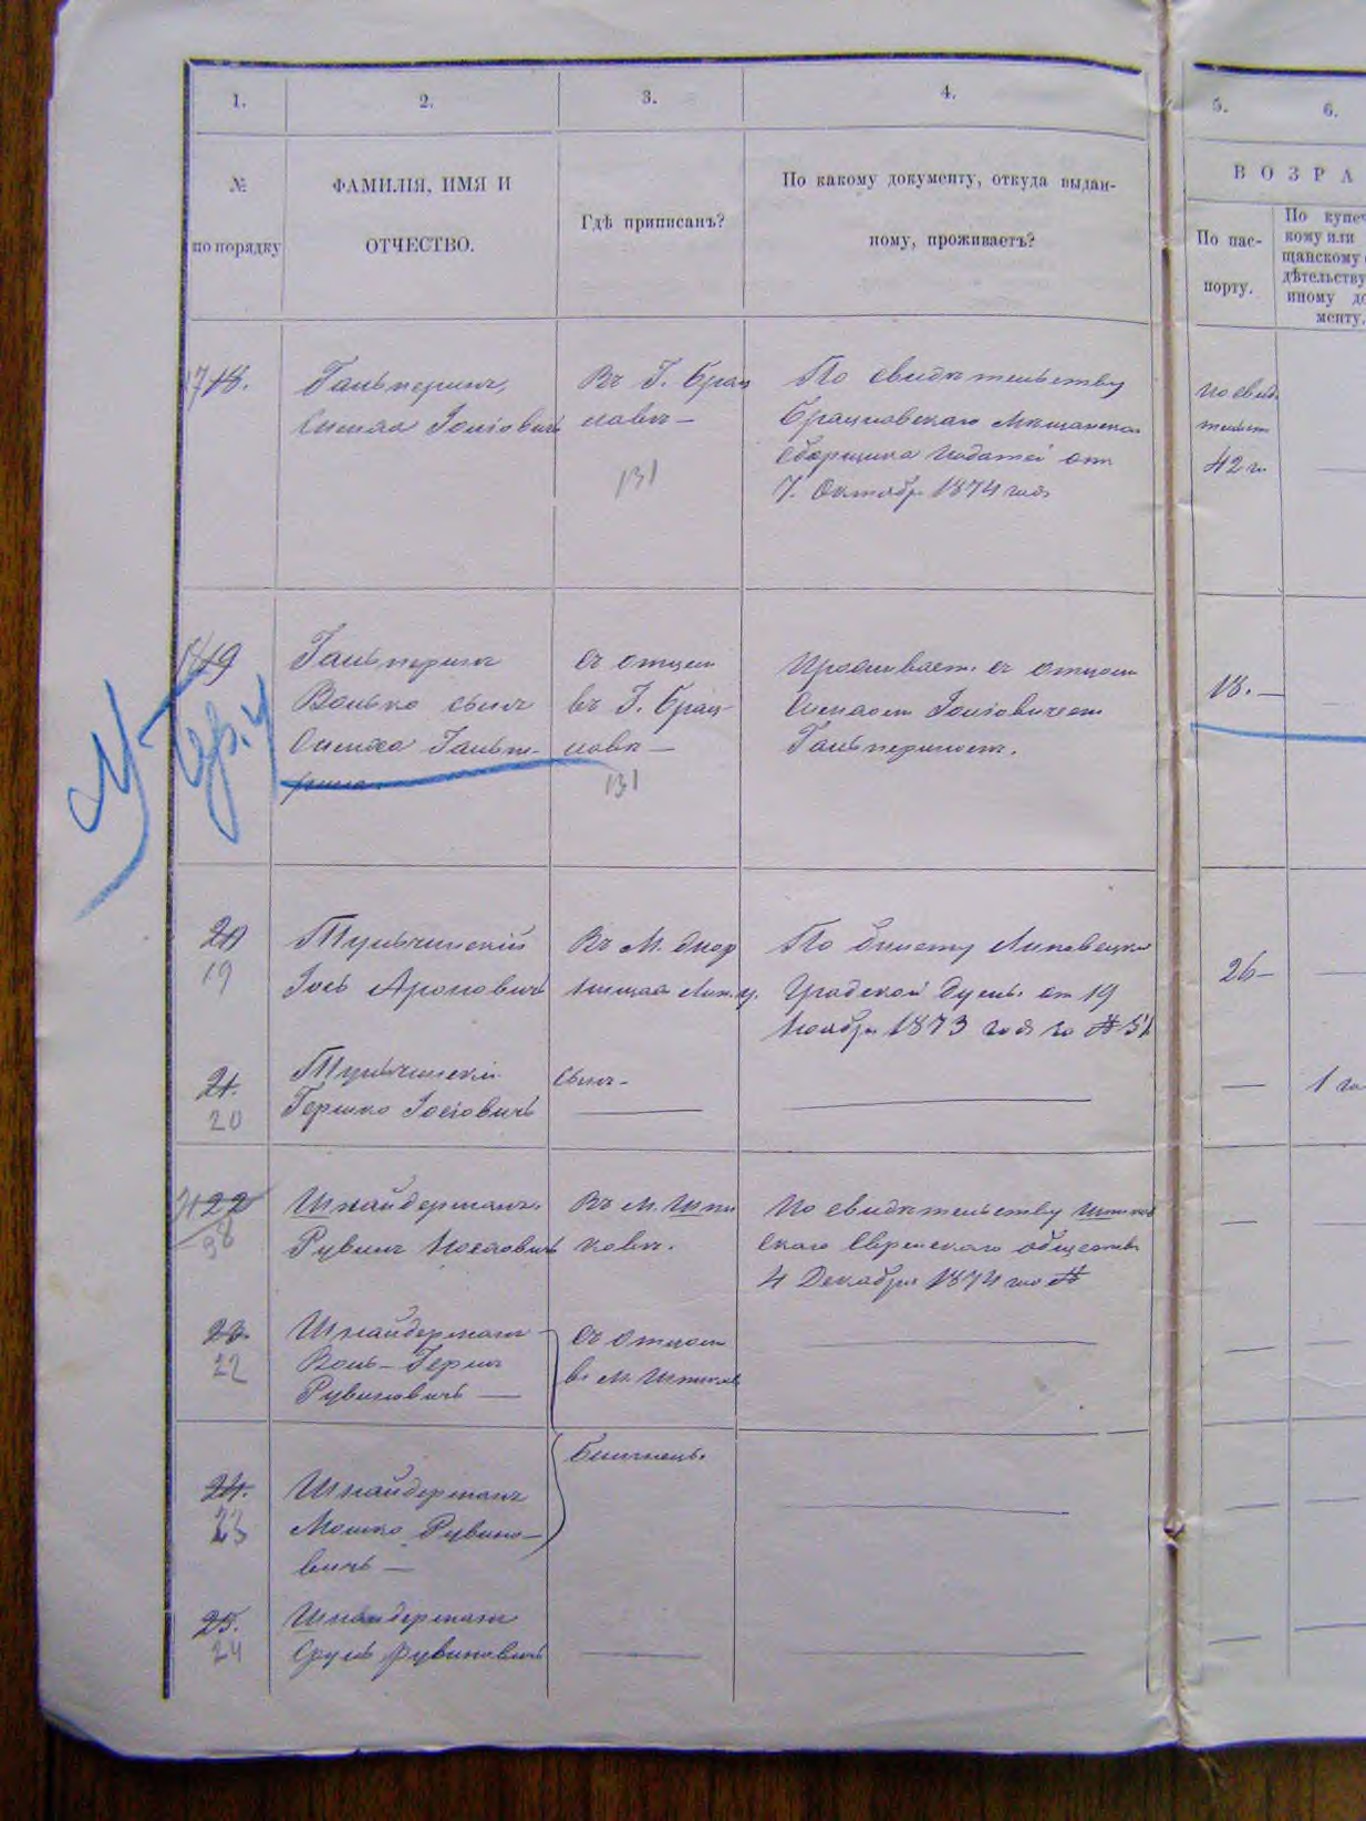 1.
2.
3.
4.
5.
6.
№
по порядку
ФАМИЛІЯ, ИМЯ И
ОТЧЕСТВО.
Гдѣ приписанъ?
По какому документу, откуда выдан-
ному, проживаетъ?
ВОЗРА
По пас-
порту.
По купеч
кому или
щанскому
дѣтельству
иному до
менту.
17 18.
Гальперинъ,
Симха Іосіовичъ
Въ Г. Брац
лавѣ —
131
По свидѣтельству
Брацлавскаго Мѣщанскаго
Сборщика податей отъ
7. Октября 1874 года
по свид
42 го
18 19
Гальперинъ
Волько сынъ
Симха Гальпе-
рина.
съ отцем
въ Г. Брац-
лавѣ —
131
Проживает. съ отцом
Симхом Іосіовичем
Гальпериным.
18. —
20
19
Тульчинскій
Іось Ароновичъ
Въ М.
Лип. у.
По билету Липовецкой
Градской Думы. от 19
Ноября 1873 года за №
26 —
21.
20
Тульчинскій
Гершко Іосіовичъ
сынъ —
1 го
21 22
98
Шнайдерманъ.
Рувинъ
Въ М. Шпи
ковѣ.
По свидѣтельству Шпиков
скаго Еврейскаго общества
4 Декабря 1874 за №
23.
22
Шнайдерманъ
Воль-Герш
Рувиновичъ —
Съ отцом
в. М. Шпиков
24.
23
Шнайдерманъ
Мошко Рувино-
вичъ —
Близнецы.
25.
24
Шнайдерманъ
Сруль Рувиновичъ